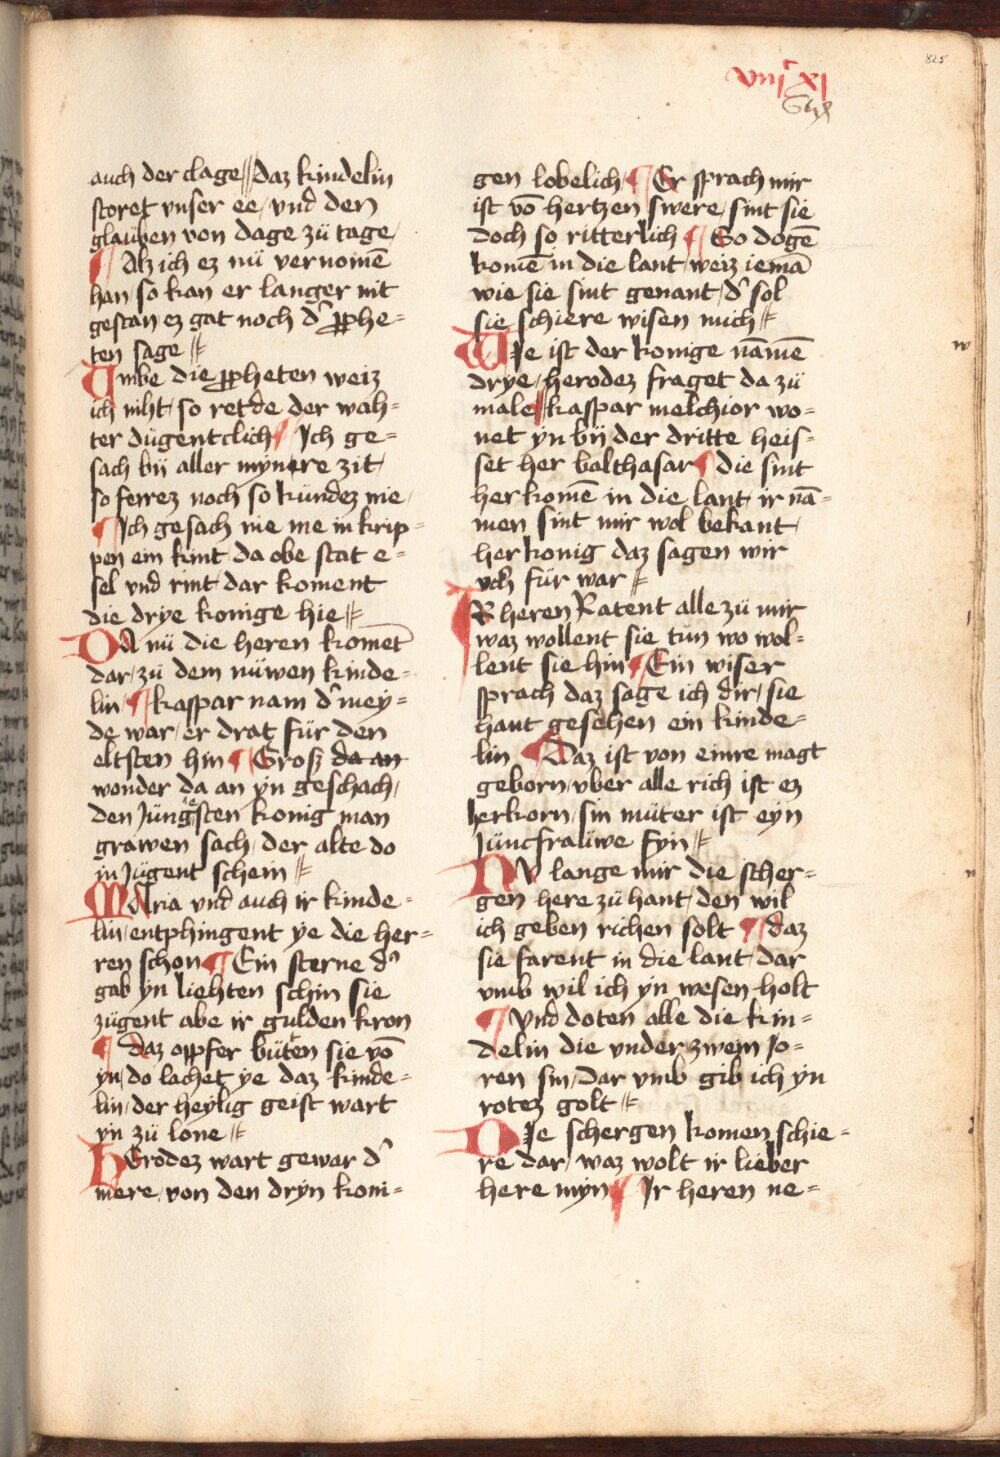 825
viiiᶜ xi
auch der clage // daz kindelin
storet vnser ee / vnd̄ den
glaüben von dage zü tage /
¶ Alz ich ez nü vernomē
han / so kan er langer nit
gestan ez gat noch d' ꝓphe=
ten sage //
Umbe die ꝓpheten weiz
ich niht / so retde der wah=
ter dügentclich ¶ Ich ge=
sach bij aller mynere zit /
so ferrez noch so kündez nie /
¶ Ich gesach nie me in krip=
pen ein kint / da obe stat e=
sel vnd rint / dar koment
die drye konige hie //
Da nü die heren komet
dar / zü dem nüwen kinde=
lin / ¶ kaspar nam d' mey=
de war / er drat für den
eltsten hin ¶ Grosz da an
wonder da an yn geschach /
den Jüngesten konig man
grawen sach / der alte do
in Jügent schein //
Maria vnd̄ auch ir kinde=
lin / entphingent ye die her=
ren schon ¶ Ein sterne d'
gab yn liehten schin sie
zügent abe ir gulden kron
¶ daz oppfer büten sie vō
yn / do lachet ye daz kinde=
lin / der heylig geist wart
yn zü lone //
Herodez wart gewar d'
mere / von den dryn koni=
gen lobelich ¶ Er sprach mir
ist vō hertzen swere / sint sie
doch so ritterlich ¶ So dogē
komē in die lant / weiz iemā
wie sie sint genant / d' sol
sie schiere wisen mich //
Wie ist der konige nāmē
drye / herodez fraget da zü
male ¶ kaspar melchior wo=
net yn bij der dritte heis=
set her balthasar ¶ die sint
her komē in die lant / ir nā=
men sint mir wol bekant /
her konig daz sagen wir
uch für war //
Ir heren Ratent alle zü mir
waz wollent sie tün wo wol=
lent sie hin ¶ Ein wiser
sprach daz sage ich dir / sie
hant gesehen ein kinde=
lin ¶ Daz ist von einre magt
geborn / vber alle rich ist ez
herkorn / sin müter ist eyn
Jüncfraüwe fyn //
Nv lange mir die scher=
gen here zü hant / den wil
ich geben richen solt ¶ daz
sie farent in die lant / dar
vmb wil ich yn wesen holt
¶ Vnd doten alle die kin=
delin die vnder zwein Jo=
ren sin / dar vmb gib ich yn
rotez golt //
Die schergen komen schie=
re dar / waz wolt ir lieber
here myn ¶ Ir heren ne=
w
n